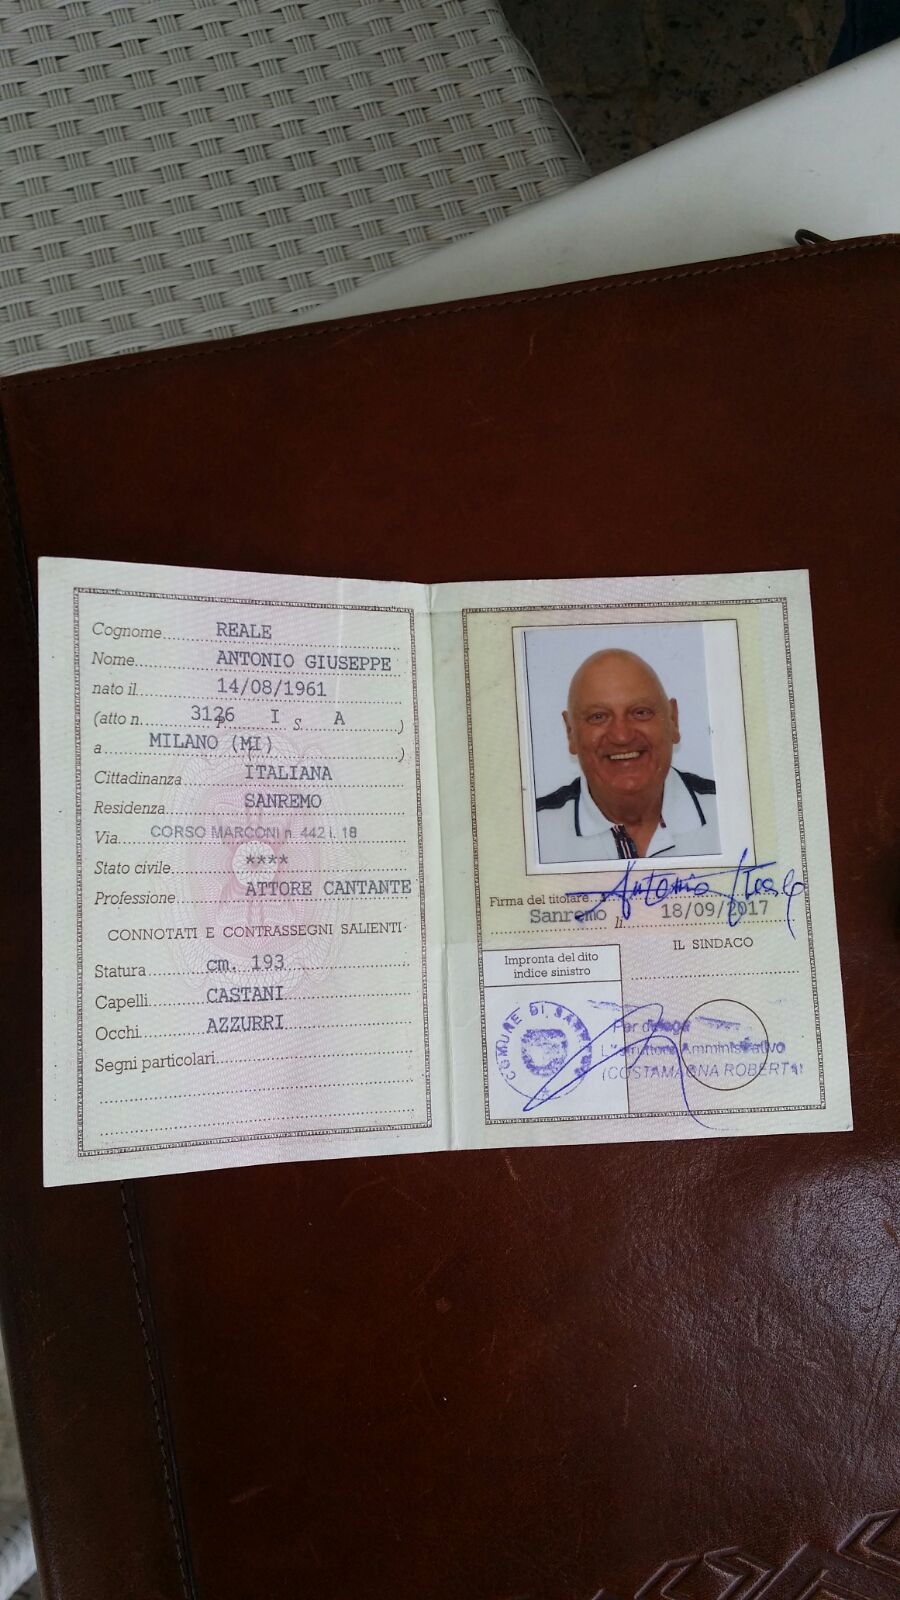 Cognome REALE
Nome ANTONIO GIUSEPPE
nato il 14/08/1961
(atto n. 3126 P. I S. A )
a MILANO (MI) )
Cittadinanza ITALIANA
Residenza SANREMO
Via CORSO MARCONI n. 442 i. 18
Stato civile ****
Professione ATTORE CANTANTE
CONNOTATI E CONTRASSEGNI SALIENTI
Statura cm. 193
Capelli CASTANI
Occhi AZZURRI
Segni particolari
Firma del titolare Antonio
Sanremo li 18/09/2017
Impronta del dito
indice sinistro
IL SINDACO
COMUNE DI
Per delega
L'Istruttore Amministrativo
(COSTAMAGNA ROBERTA)